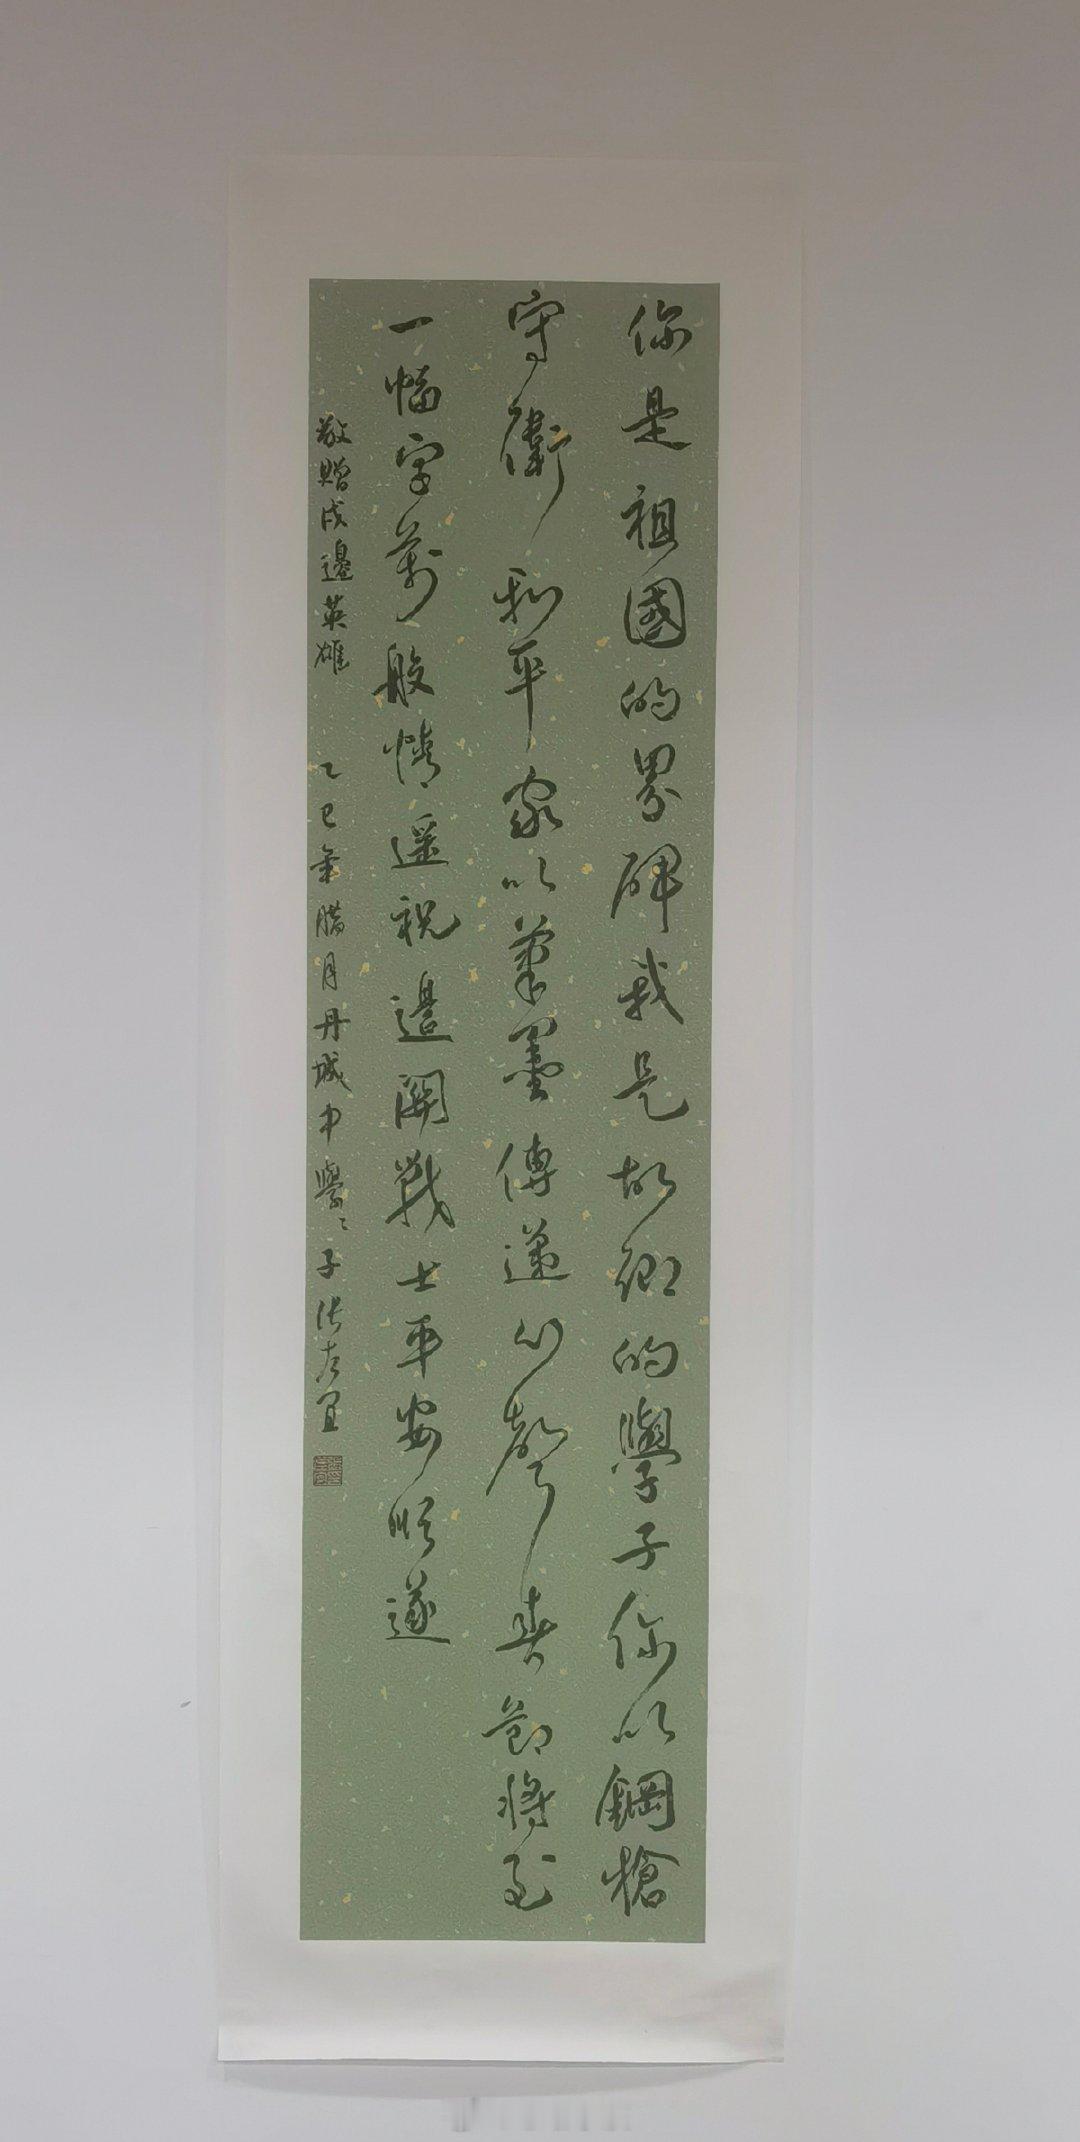 你是祖國的界碑我是故鄉的學子你以鋼槍
守衛和平家以筆墨傳遞心聲春節將至
一幅字萬般情遥祝邊關戰士平安順遂
敬贈戍邊英雄 乙巳年臘月丹城中學學子張宜